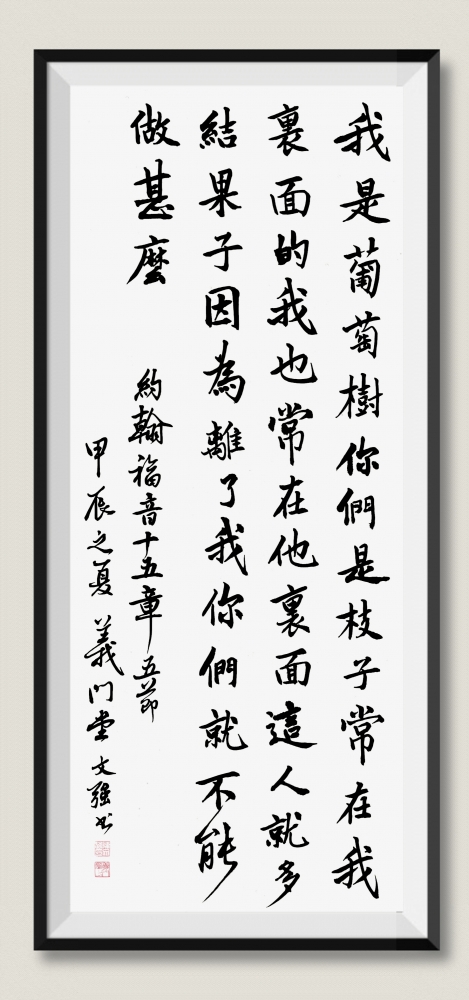 我是葡萄樹你們是枝子常在我
裏面的我也常在他裏面這人就多
結果子因為離了我你們就不能
做甚麼
約翰福音十五章五節
甲辰之夏義門堂文強书